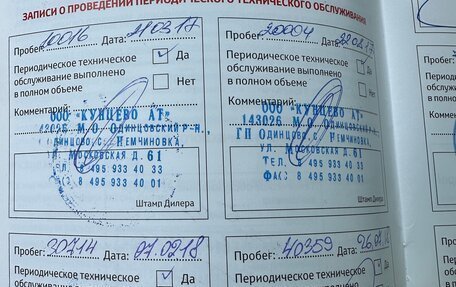 ЗАПИСИ О ПРОВЕДЕНИИ ПЕРИОДИЧЕСКОГО ТЕХНИЧЕСКОГО ОБСЛУЖИВАНИЯ
Пробег: 10016 Дата: 21.03.17
Периодическое техническое
обслуживание выполнено
в полном объеме
Да
Нет
Комментарий:
ООО "КУНЦЕВО АТ"
М.О. Одинцовский р-н,
Одинцово, с. Немчиновка,
ул. Московская д. 61
8 495 933 40 33
8 495 933 40 01
Штамп Дилера
Пробег: 20004 Дата:
Периодическое техническое
обслуживание выполнено
в полном объеме
Да
Нет
Комментарий:
ООО "КУНЦЕВО АТ"
143026 М.О. Одинцовский р-н,
ГП Одинцово, с. Немчиновка,
ул. Московская д. 61
Тел. 8 495 933 40 33
Факс 8 495 933 40 01
Штамп Дилера
Пробег: 30714 Дата: 07.02.18
Периодическое техническое
обслуживание выполнено
Да
Пробег: 40359 Дата:
Периодическое техническое
обслуживание выполнено
Да